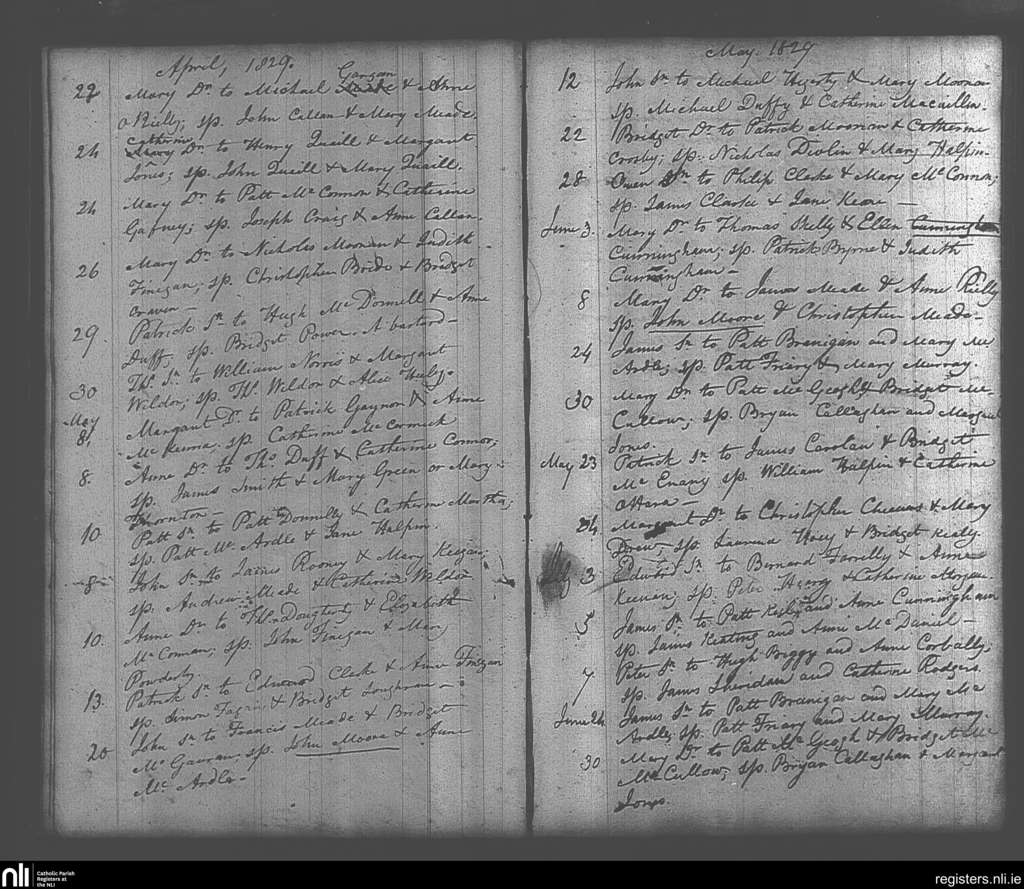 April, 1829.
22 Mary Dr. to Michael Gargan & Anne
O Reilly; sp. John Callan & Mary Meade.
24 Catherine Dr. to Henry Quaill & Margaret
Jones; sp. John Quaill & Mary Quaill.
24 Mary Dr. to Patt Mc Connon & Catherine
Gafney; sp. Joseph Craig & Anne Callan.
26 Mary Dr. to Nicholas Moonan & Judith
Finegan; sp. Christopher Bride & Bridget
Craven —
29. Patrick Sn. to Hugh Mc Donnell & Anne
Duff, sp. Bridget Power. A bastard —
30 Ths. Sn. to William Norris & Margaret
Weldon; sp. Ths. Weldon & Alice Healy.
May
8. Margaret Dr. to Patrick Gaynon & Anne
Mc Kenna. sp. Catherine Mc Cormick
8. Anne Dr. to Ths. Duff & Catherine Connor;
sp. James Smith & Mary Green or Mary
Thornton —
10 Patt Sn. to Patt Donnelly & Catherine Murtha;
sp. Patt Mc Ardle & Jane Halpin.
8 John Sn. to James Rooney & Mary Keegan;
sp. Andrew Meade & Catherine Weldon
10. Anne Dr. to Ths. Dougherty & Elizabeth
Mc Connan; sp. John Finegan & Mary
Powderly.
13. Patrick Sn. to Edward Clarke & Anne Finegan
sp. Simon Fagan & Bridget Loughran —
20 John Sn. to Francis Meade & Bridget
Mc Gauran, sp. John Moore & Anne
Mc Ardle —
May 1829
12 John Sn. to Michael Hegerty & Mary Moonan
sp. Michael Duffy & Catherine
22 Bridget Dr. to Patrick Moonan & Catherine
Crosby; sp. Nicholas Devlin & Mary Halpin.
28 Owen Sn. to Philip Clarke & Mary Mc Connon;
sp. James Clarke & Jane Keone —
June 3. Mary Dr. to Thomas Skelly & Ellen Cunningham
Cunningham; sp. Patrick Byrne & Judith
Cunningham —
8 Mary Dr. to James Meade & Anne Reilly
sp. John Moore & Christopher Meade.
24 James Sn. to Patt Branigan and Mary Mc
Ardle; sp. Patt Friary & Mary Murray.
30 Mary Dr. to Patt Mc Geogh & Bridget Mc
Cullow; sp. Bryan Callaghan and Margaret
Jones.
May 23 Patrick Sn. to James Carolan & Bridget
Mc Enany sp. William Halpin & Catherine
OHara —
24 Margaret Dr. to Christopher Cheevers & Mary
Drew, sp. Laurence Hoey & Bridget Kealy.
3 Edward Sn. to Bernard Farrelly & Anne
Keenan; sp. Peter Heavy & Catherine Morgan.
5 James Sn. to Patt Kealy and Anne Cunningham
sp. James Keating and Anne Mc Daniel —
7 Peter Sn. to Hugh Briggs and Anne Corbally;
sp. James Sheridan and Catherine Rodgers.
June 24 James Sn. to Patt Branigan and Mary Mc
Ardle, sp. Patt Friary and Mary Murray.
30 Mary Dr. to Patt Mc Geogh & Bridget Mc
Mc Cullow; sp. Bryan Callaghan & Margaret
Jones.
nli Catholic Parish
Registers at
the NLI
registers.nli.ie